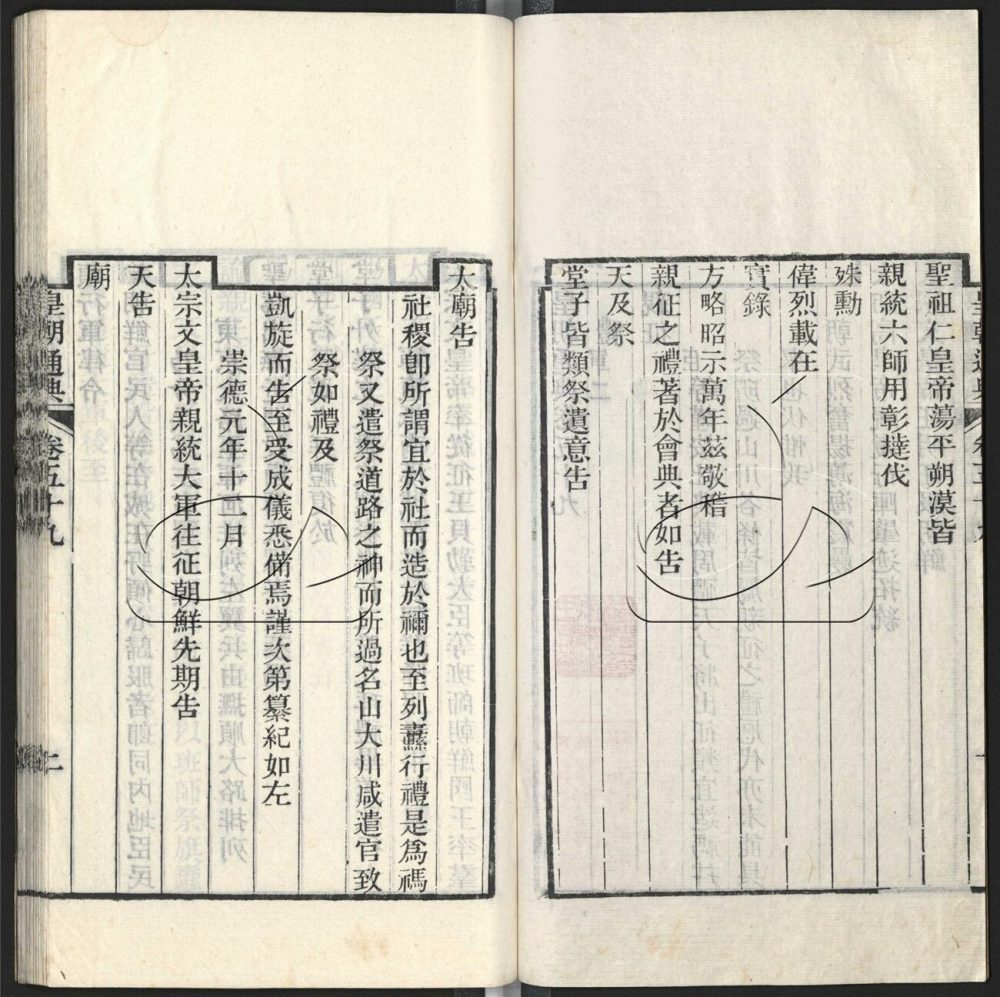 聖祖仁皇帝蕩平朔漠皆
親統六師用彰撻伐
殊勳
偉烈載在
實錄
方略昭示萬年茲敬稽
親征之禮著於會典者如告
天及祭
堂子皆類祭遺意告
太廟告
社稷卽所謂宜於社而造於禰也至列纛行禮是爲禡
祭又遣祭道路之神而所過名山大川咸遣官致
祭如禮及
凱旋而告至受成儀悉備焉謹次第纂紀如左
崇德元年十二月
太宗文皇帝親統大軍往征朝鮮先期告
天告
廟
皇朝通典 卷五十九 二